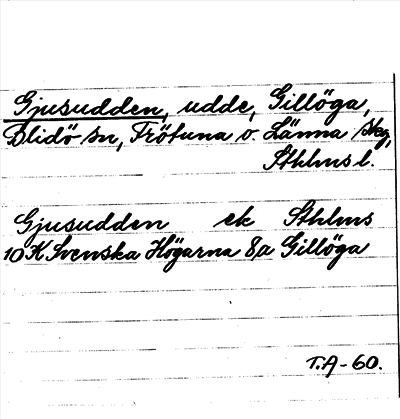 Gjusudden, udde, Gillöga,
Blidö sn, Frötuna o. Länna skg,
Sthlms l.
Gjusudden ek Sthlms
10 K Svenska Högarna 8,a Gillöga
T.A-60.